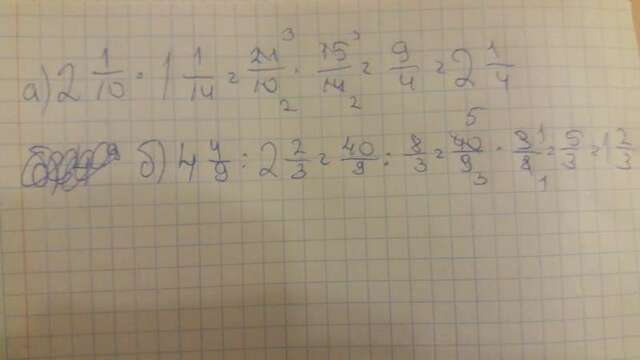 а) 2 1/10 · 1 1/14 = 21/10 · 15/14 = 9/4 = 2 1/4
б) 4 4/9 : 2 2/3 = 40/9 : 8/3 = 40/9 · 3/8 = 5/3 = 1 2/3